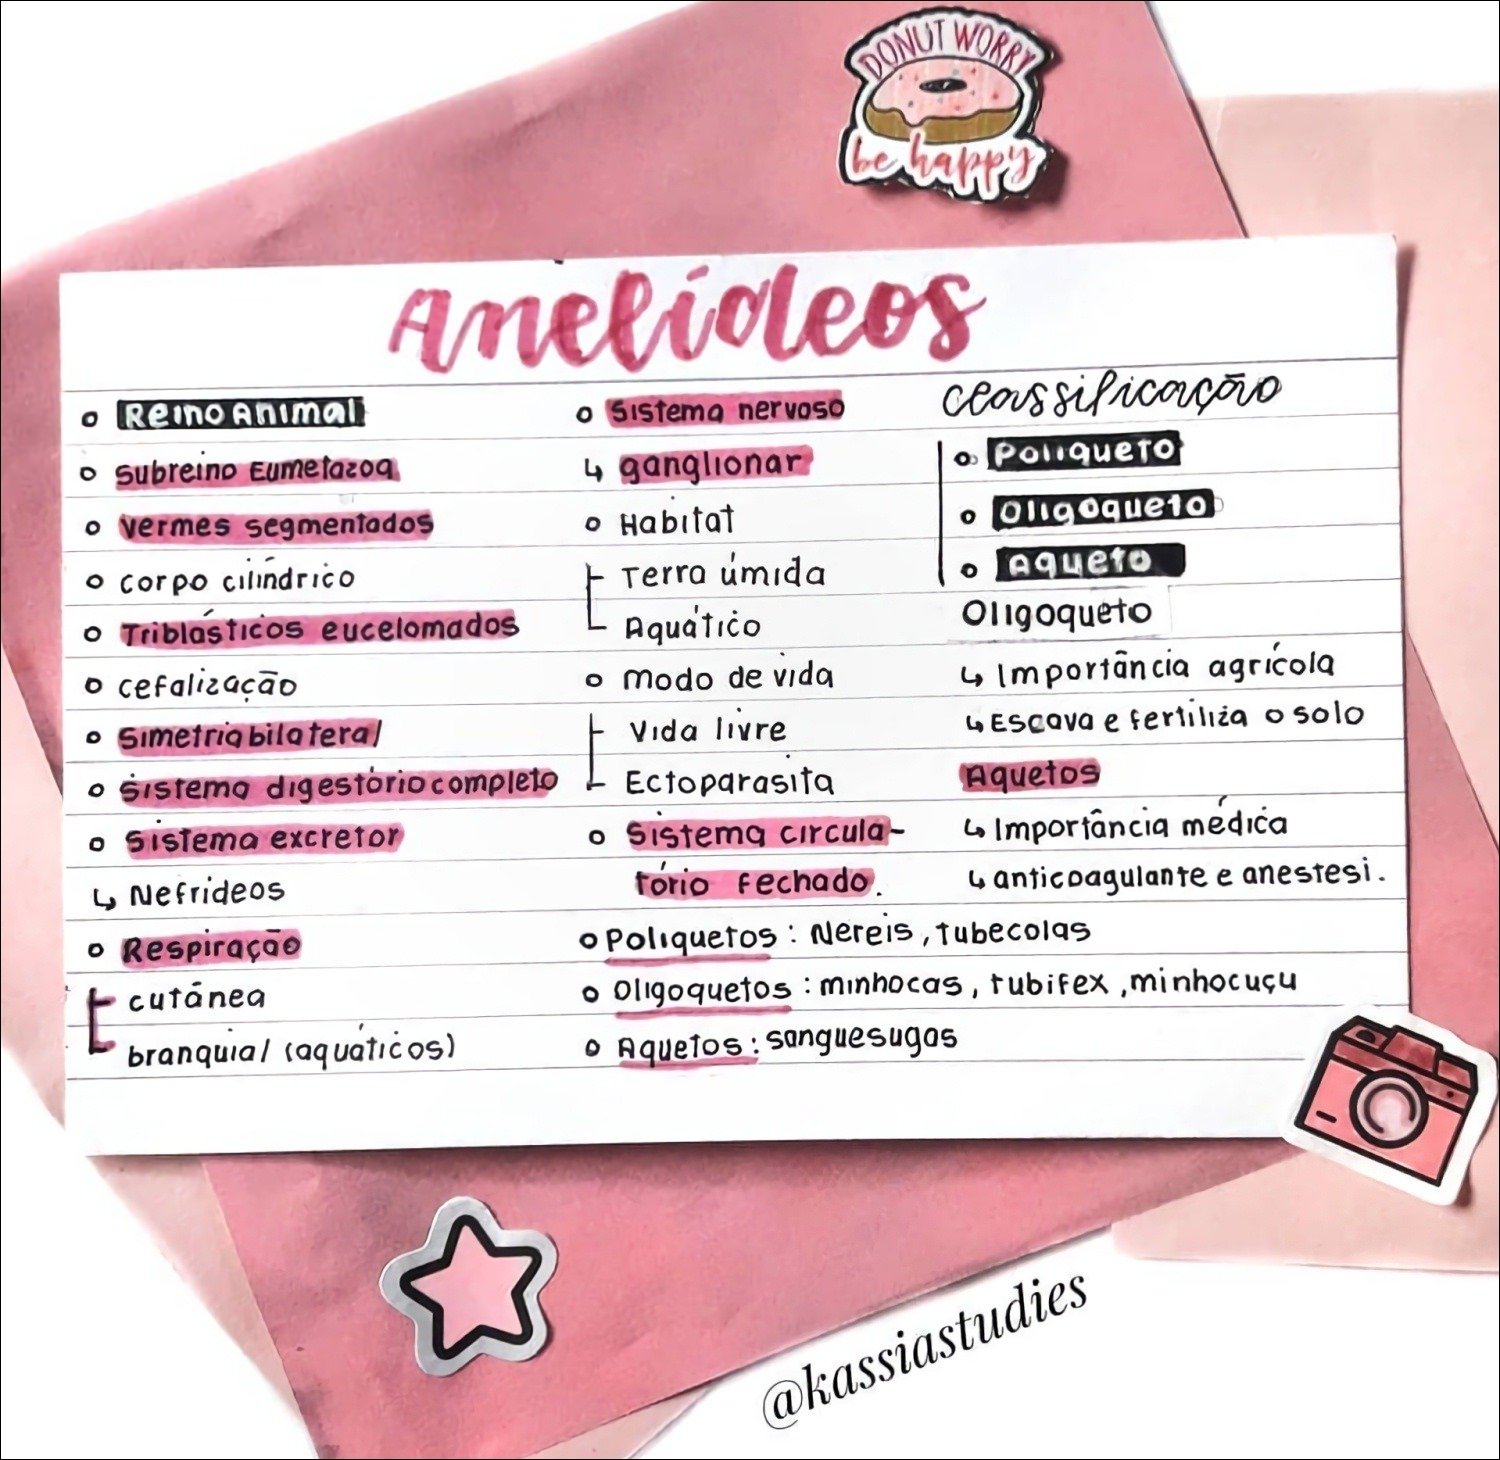 DONUT WORRY
be happy
Anelídeos
Reino Animal
Subreino Eumetazoa
Vermes segmentados
corpo cilíndrico
Triblásticos eucelomados
cefalização
Simetria bilateral
Sistema digestório completo
Sistema excretor
↳ Nefrídeos
Respiração
cutánea
branquial (aquáticos)
Sistema nervoso
↳ ganglionar
Habitat
Terra úmida
Aquático
Modo de vida
Vida livre
Ectoparasita
Sistema circula-
tório fechado.
Classificação
Poliqueto
Oligoqueto
Aqueto
Oligoqueto
↳ Importância agrícola
↳ Escava e fertiliza o solo
Aquetos
↳ Importância médica
↳ anticoagulante e anestesi.
Poliquetos: Nereis, tubecolas
Oligoquetos: minhocas, tubifex, minhocuçu
Aquetos: sanguesugas
@kassiastudies